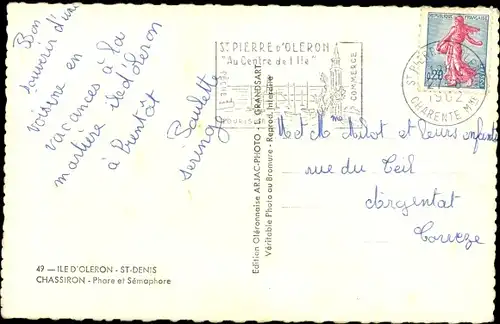 Bon
souvenir d'une
voisine en
vacances à la
île d'Oleron
à bientôt
Paulette
St PIERRE d'OLERON
"Au Centre de l'Ile"
COMMERCE
TOURISME
REPUBLIQUE FRANÇAISE
0,20
POSTES
1962
CHARENTE MME
M et Mme Milot et leurs enfants
rue du Teil
Argentat
Corrèze
Edition Oléronnaise ARJAC-PHOTO - E. GRANDSART
Véritable Photo au Bromure - Reprod. Interdite
49 — ILE D'OLERON - ST-DENIS
CHASSIRON - Phare et Sémaphore